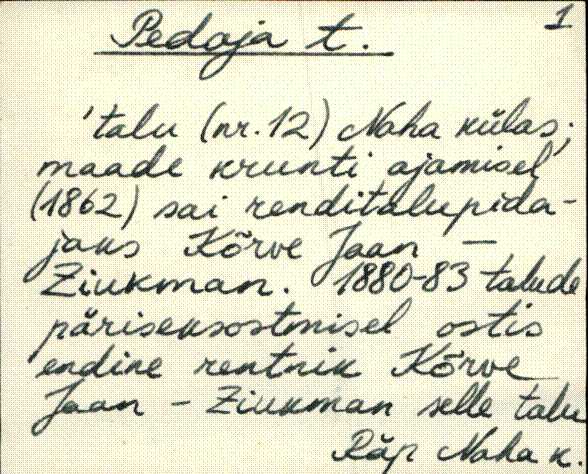 1
Pedoja t.
'talu (nr. 12) Naha külas;
maade krunti ajamisel
(1862) sai renditalupida-
jaks Kõrve Jaan –
Ziukman. 1880-83 talude
päriseksostmisel ostis
endine rentnik Kõrve
Jaan – Ziukman selle talu
Räp Naha k.